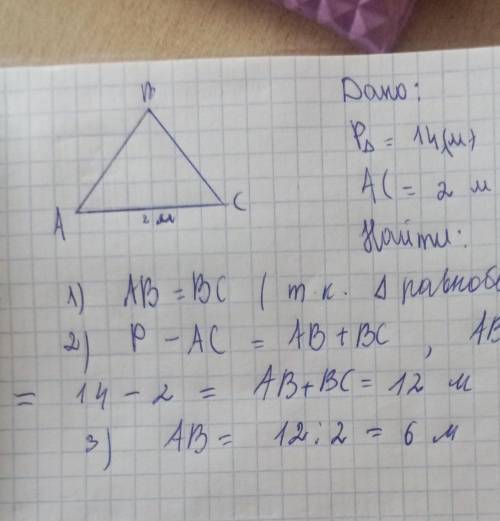 B
A
C
2 м
Дано:
P△ = 14(м)
AC = 2 м
Найти:
1) AB = BC ( т.к. △ равноб
2) P - AC = AB + BC , AB
= 14 - 2 = AB + BC = 12 м
3) AB = 12 : 2 = 6 м